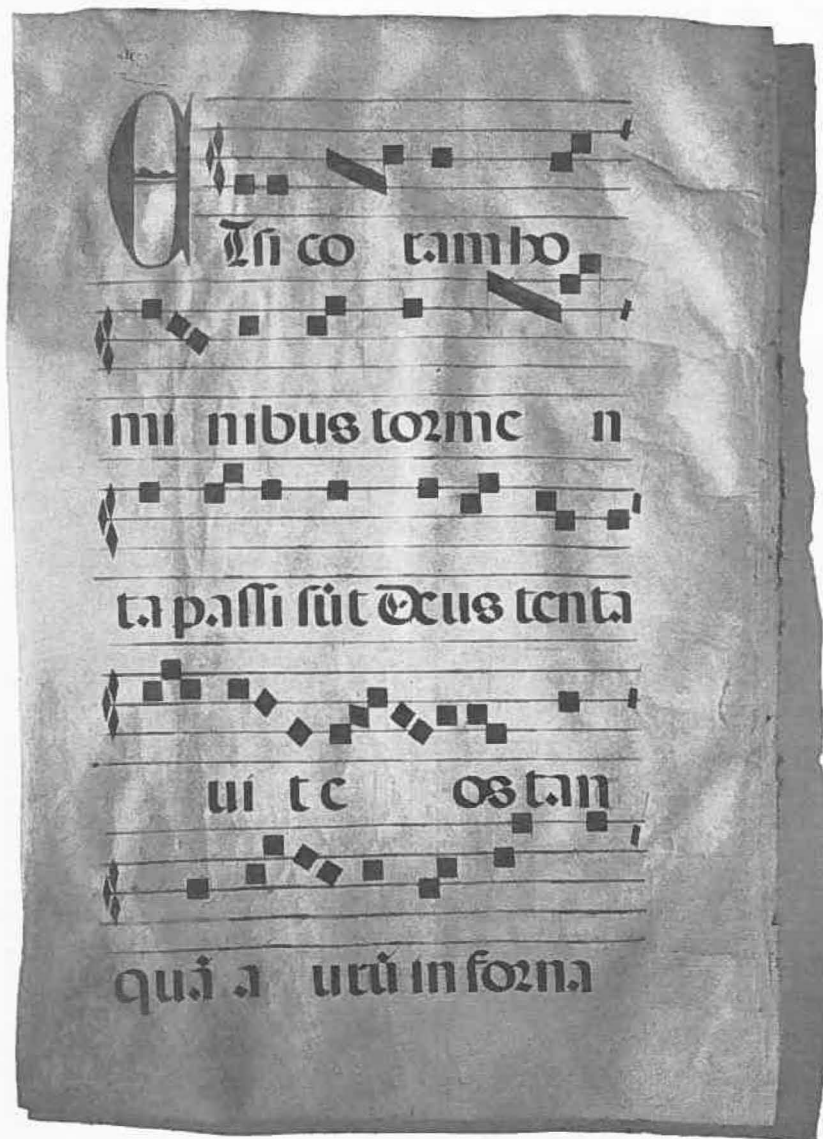 ETsi co ram ho
mi nibus torme n
ta passi sūt Deus tenta
ui t e os tan
quā a urū in forna